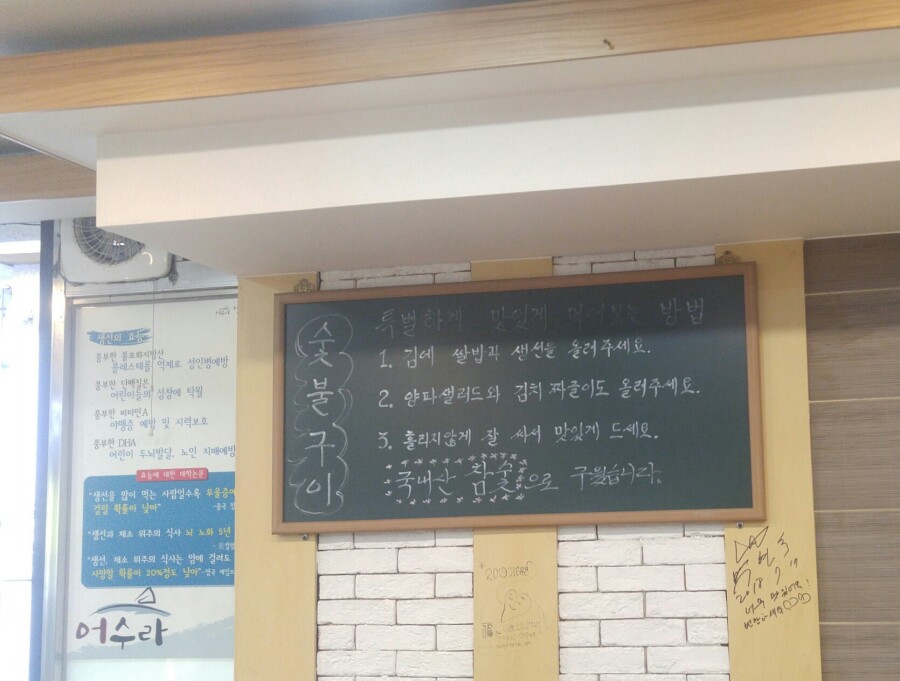 생선의 효능
풍부한 불포화지방산
콜레스테롤 억제로 성인병예방
풍부한 단백질은
어린이들의 성장에 탁월
풍부한 비타민A
야맹증 예방 및 시력보호
풍부한 DHA
어린이 두뇌발달, 노인 치매예방
효능에 대한 대학논문
"생선을 많이 먹는 사람일수록 우울증에
걸릴 확률이 낮아"
"생선과 채소 위주의 식사 뇌 노화 5년
"생선, 채소 위주의 식사는 암에 걸려도
사망할 확률이 20%정도 낮아"
어수라
숯불구이
특별하게 맛있게 먹어보는 방법
1. 김에 쌀밥과 생선을 올려주세요.
2. 양파샐러드와 김치 짜글이도 올려주세요.
3. 흘리지않게 잘 싸서 맛있게 드세요.
국내산 참숯으로 구웠습니다.
2018